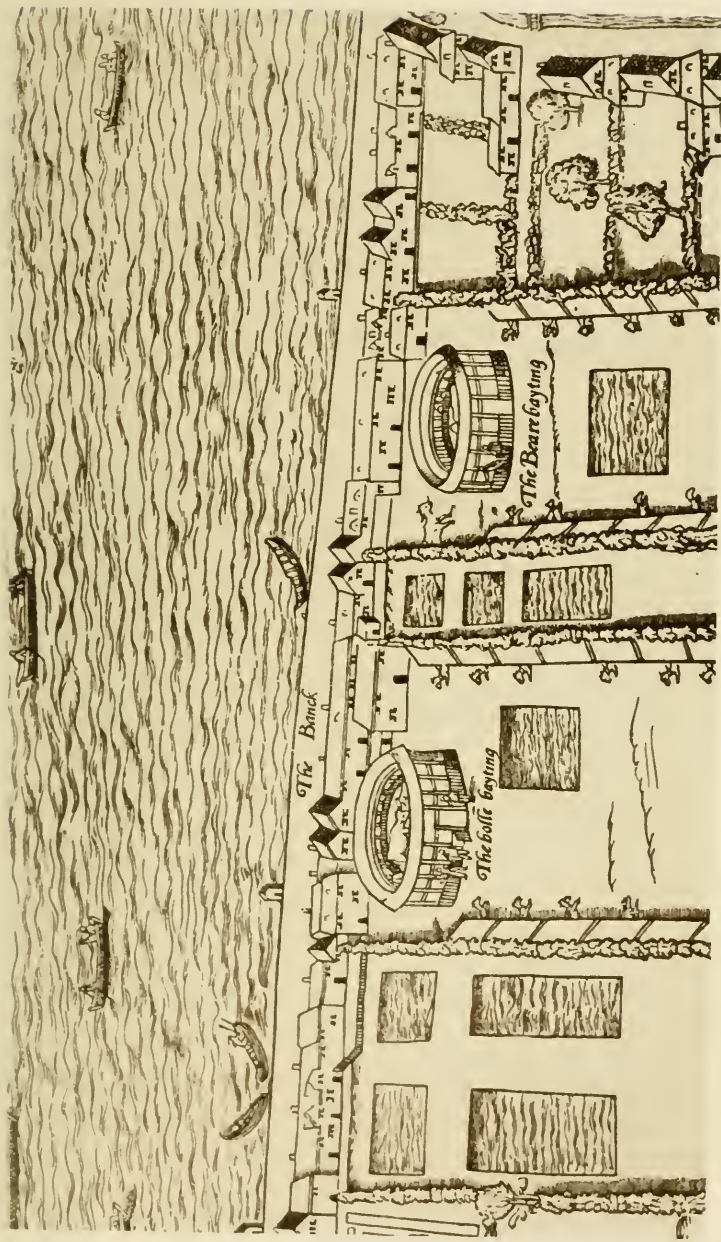 The Banck
The bolle bayting
The Beare bayting